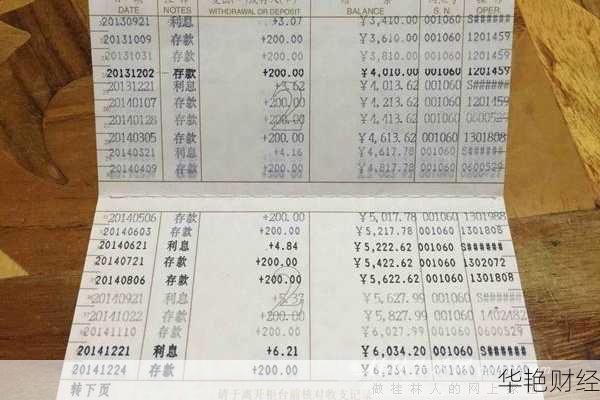 DATE NOTES WITHDRAWAL OR DEPOSIT BALANCE S.N. OPER.
20130921 利息 +3.07 ￥3,410.00 001060 S######
20131009 存款 +200.00 ￥3,610.00 001060 1201459
20131031 存款 +200.00 ￥3,810.00 001060
20131202 存款 +200.00 ￥4,010.00 001060 1201459
20131221 利息 +3.62 ￥4,013.62 001060 S######
20140107 存款 +200.00 ￥4,213.62 001060 1201459
20140128 存款 +200.00 ￥4,413.62 001060
20140305 存款 +200.00 ￥4,613.62 001060 1301808
20140321 利息 +4.16 ￥4,617.78 001060 S######
20140409 存款 +200.00 ￥4,817.78 001060 0600529
20140506 存款 +200.00 ￥5,017.78 001060 1301988
20140603 存款 +200.00 ￥5,217.78 001060 1301808
20140621 利息 +4.84 ￥5,222.62 001060 S######
20140721 存款 +200.00 ￥5,422.62 001060 1302072
20140806 存款 +200.00 ￥5,622.62 001060 1301808
20140921 利息 +5.37 ￥5,627.99 001060 S######
20141022 存款 +200.00 ￥5,827.99 001060
20141110 存款 +200.00 ￥6,027.99 001060 0600529
20141221 利息 +6.21 ￥6,034.20 001060 S######
20141224 存款 +200.00 ￥6,234.20 001060
转下页 请于离开柜台前核对收支记录
做桂林人的网上
华艳财经